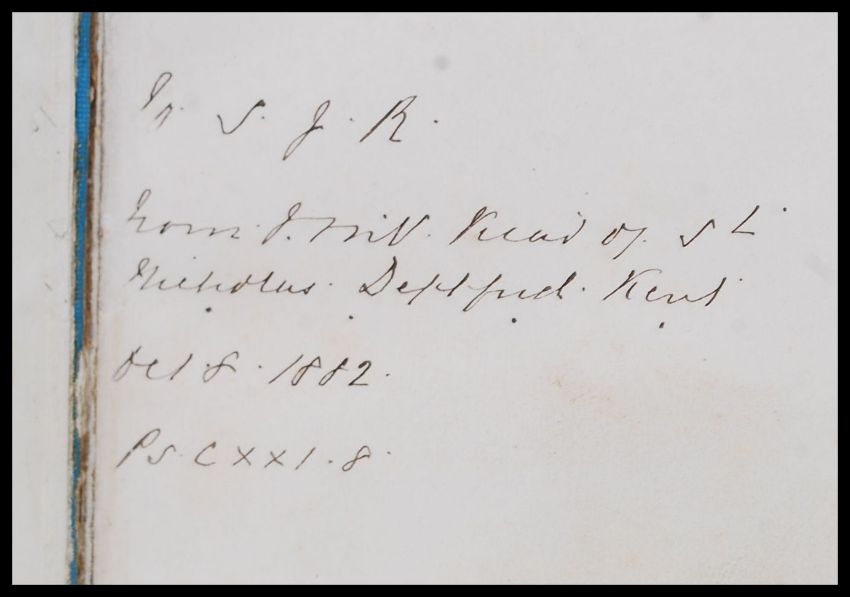 To S. J. R.
from J. Vicar of St
Nicholas. Deptford. Kent
Oct 8. 1882.
Ps. CXXI. 8.